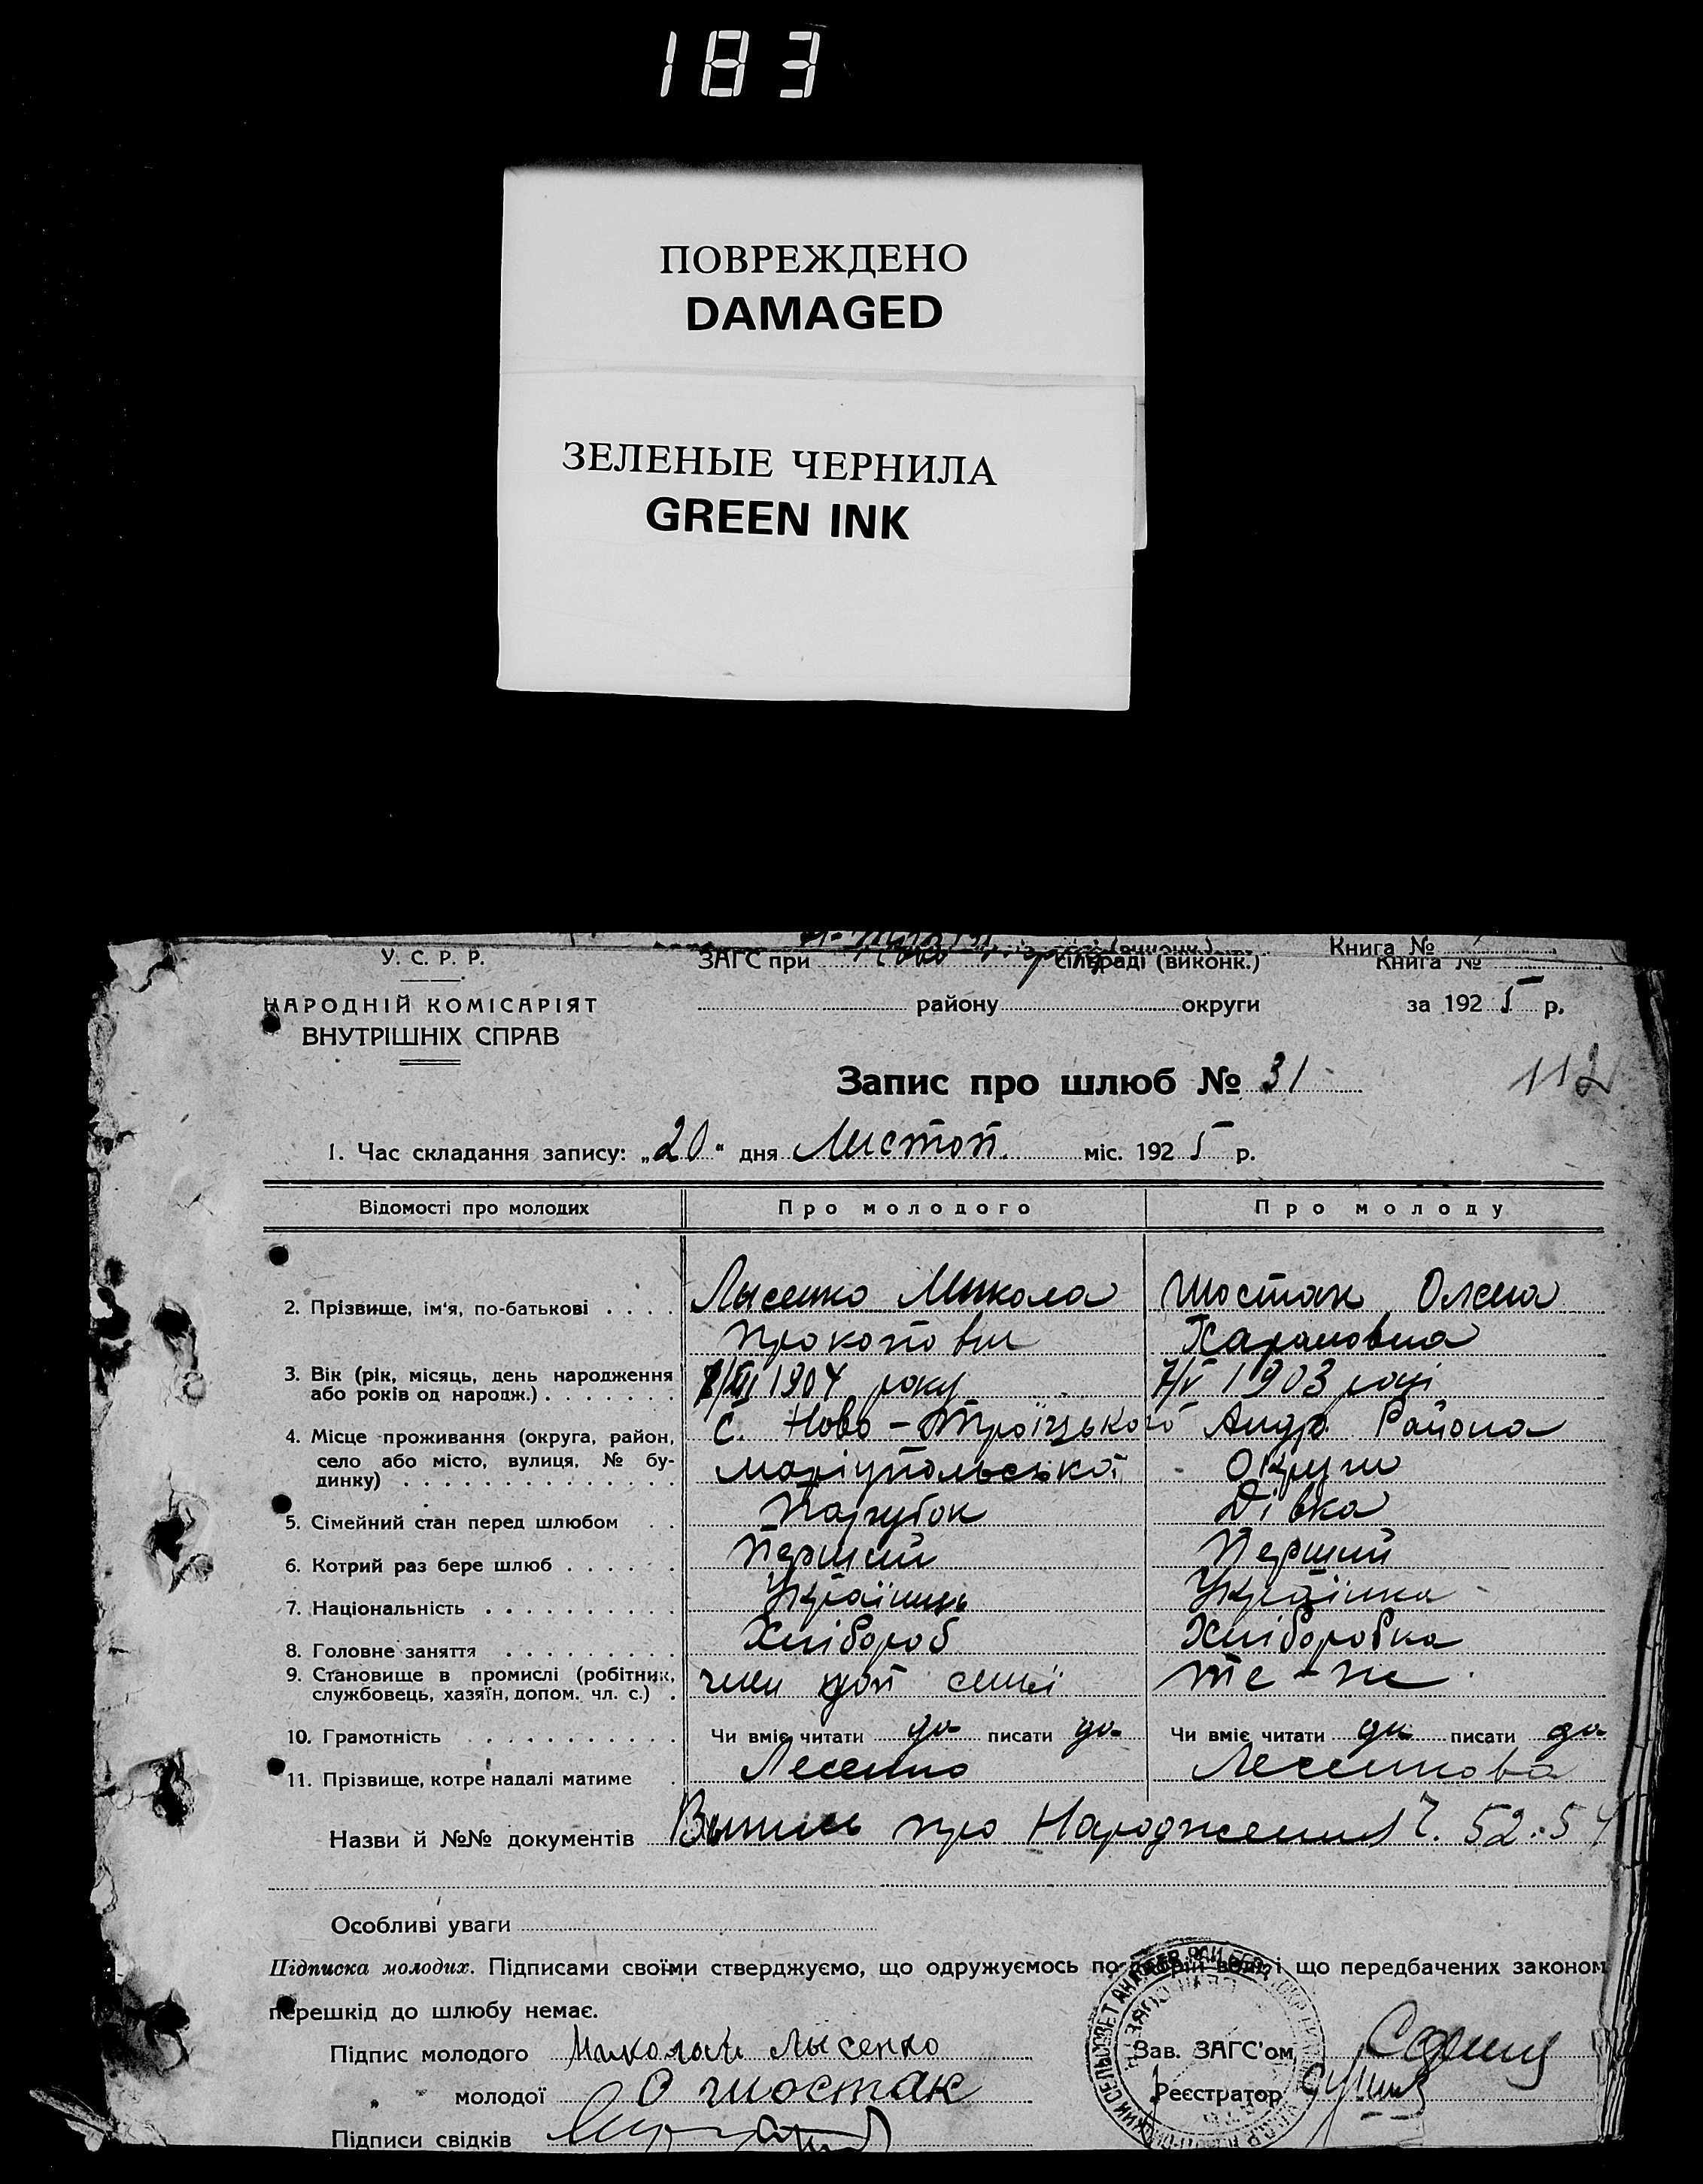 183
ПОВРЕЖДЕНО
DAMAGED
ЗЕЛЕНЫЕ ЧЕРНИЛА
GREEN INK
У. С. Р. Р. ЗАГС при сільраді (виконк.) Книга №
Книга №
НАРОДНІЙ КОМІСАРІЯТ району округи за 1925 р.
ВНУТРІШНІХ СПРАВ
Запис про шлюб № 31 112
1. Час складання запису: „20" дня Листоп. міс. 1925 р.
Відомості про молодих Про молодого Про молоду
2. Прізвище, ім'я, по-батькові Лысенко Микола Шостак Олена
Прокопович Харановна
3. Вік (рік, місяць, день народження 1904 року 7/V 1903 році
або років од народж.)
4. Місце проживання (округа, район, С. Ново-Троїцького Андр. Района
село або місто, вулиця, № бу- Маріупольської Округи
динку)
5. Сімейний стан перед шлюбом Парубок Дівка
6. Котрий раз бере шлюб Перший Перший
7. Національність Українець Українка
8. Головне заняття Хлібороб Хліборобка
9. Становище в промислі (робітник, член доп семьї те-же
службовець, хазяїн, допом. чл. с.)
10. Грамотність Чи вміє читати да писати да Чи вміє читати да писати да
11. Прізвище, котре надалі матиме Лесенко Лесенкова
Назви й №№ документів Выпись про Народження Ч. 52.54
Особливі уваги
Підписка молодих. Підписами своїми стверджуємо, що одружуємось по добрій волі і що передбачених законом
перешкід до шлюбу немає.
Підпис молодого Миколай Лысенко Зав. ЗАГС'ом
„ молодої О Шостак Реєстратор
Підписи свідків